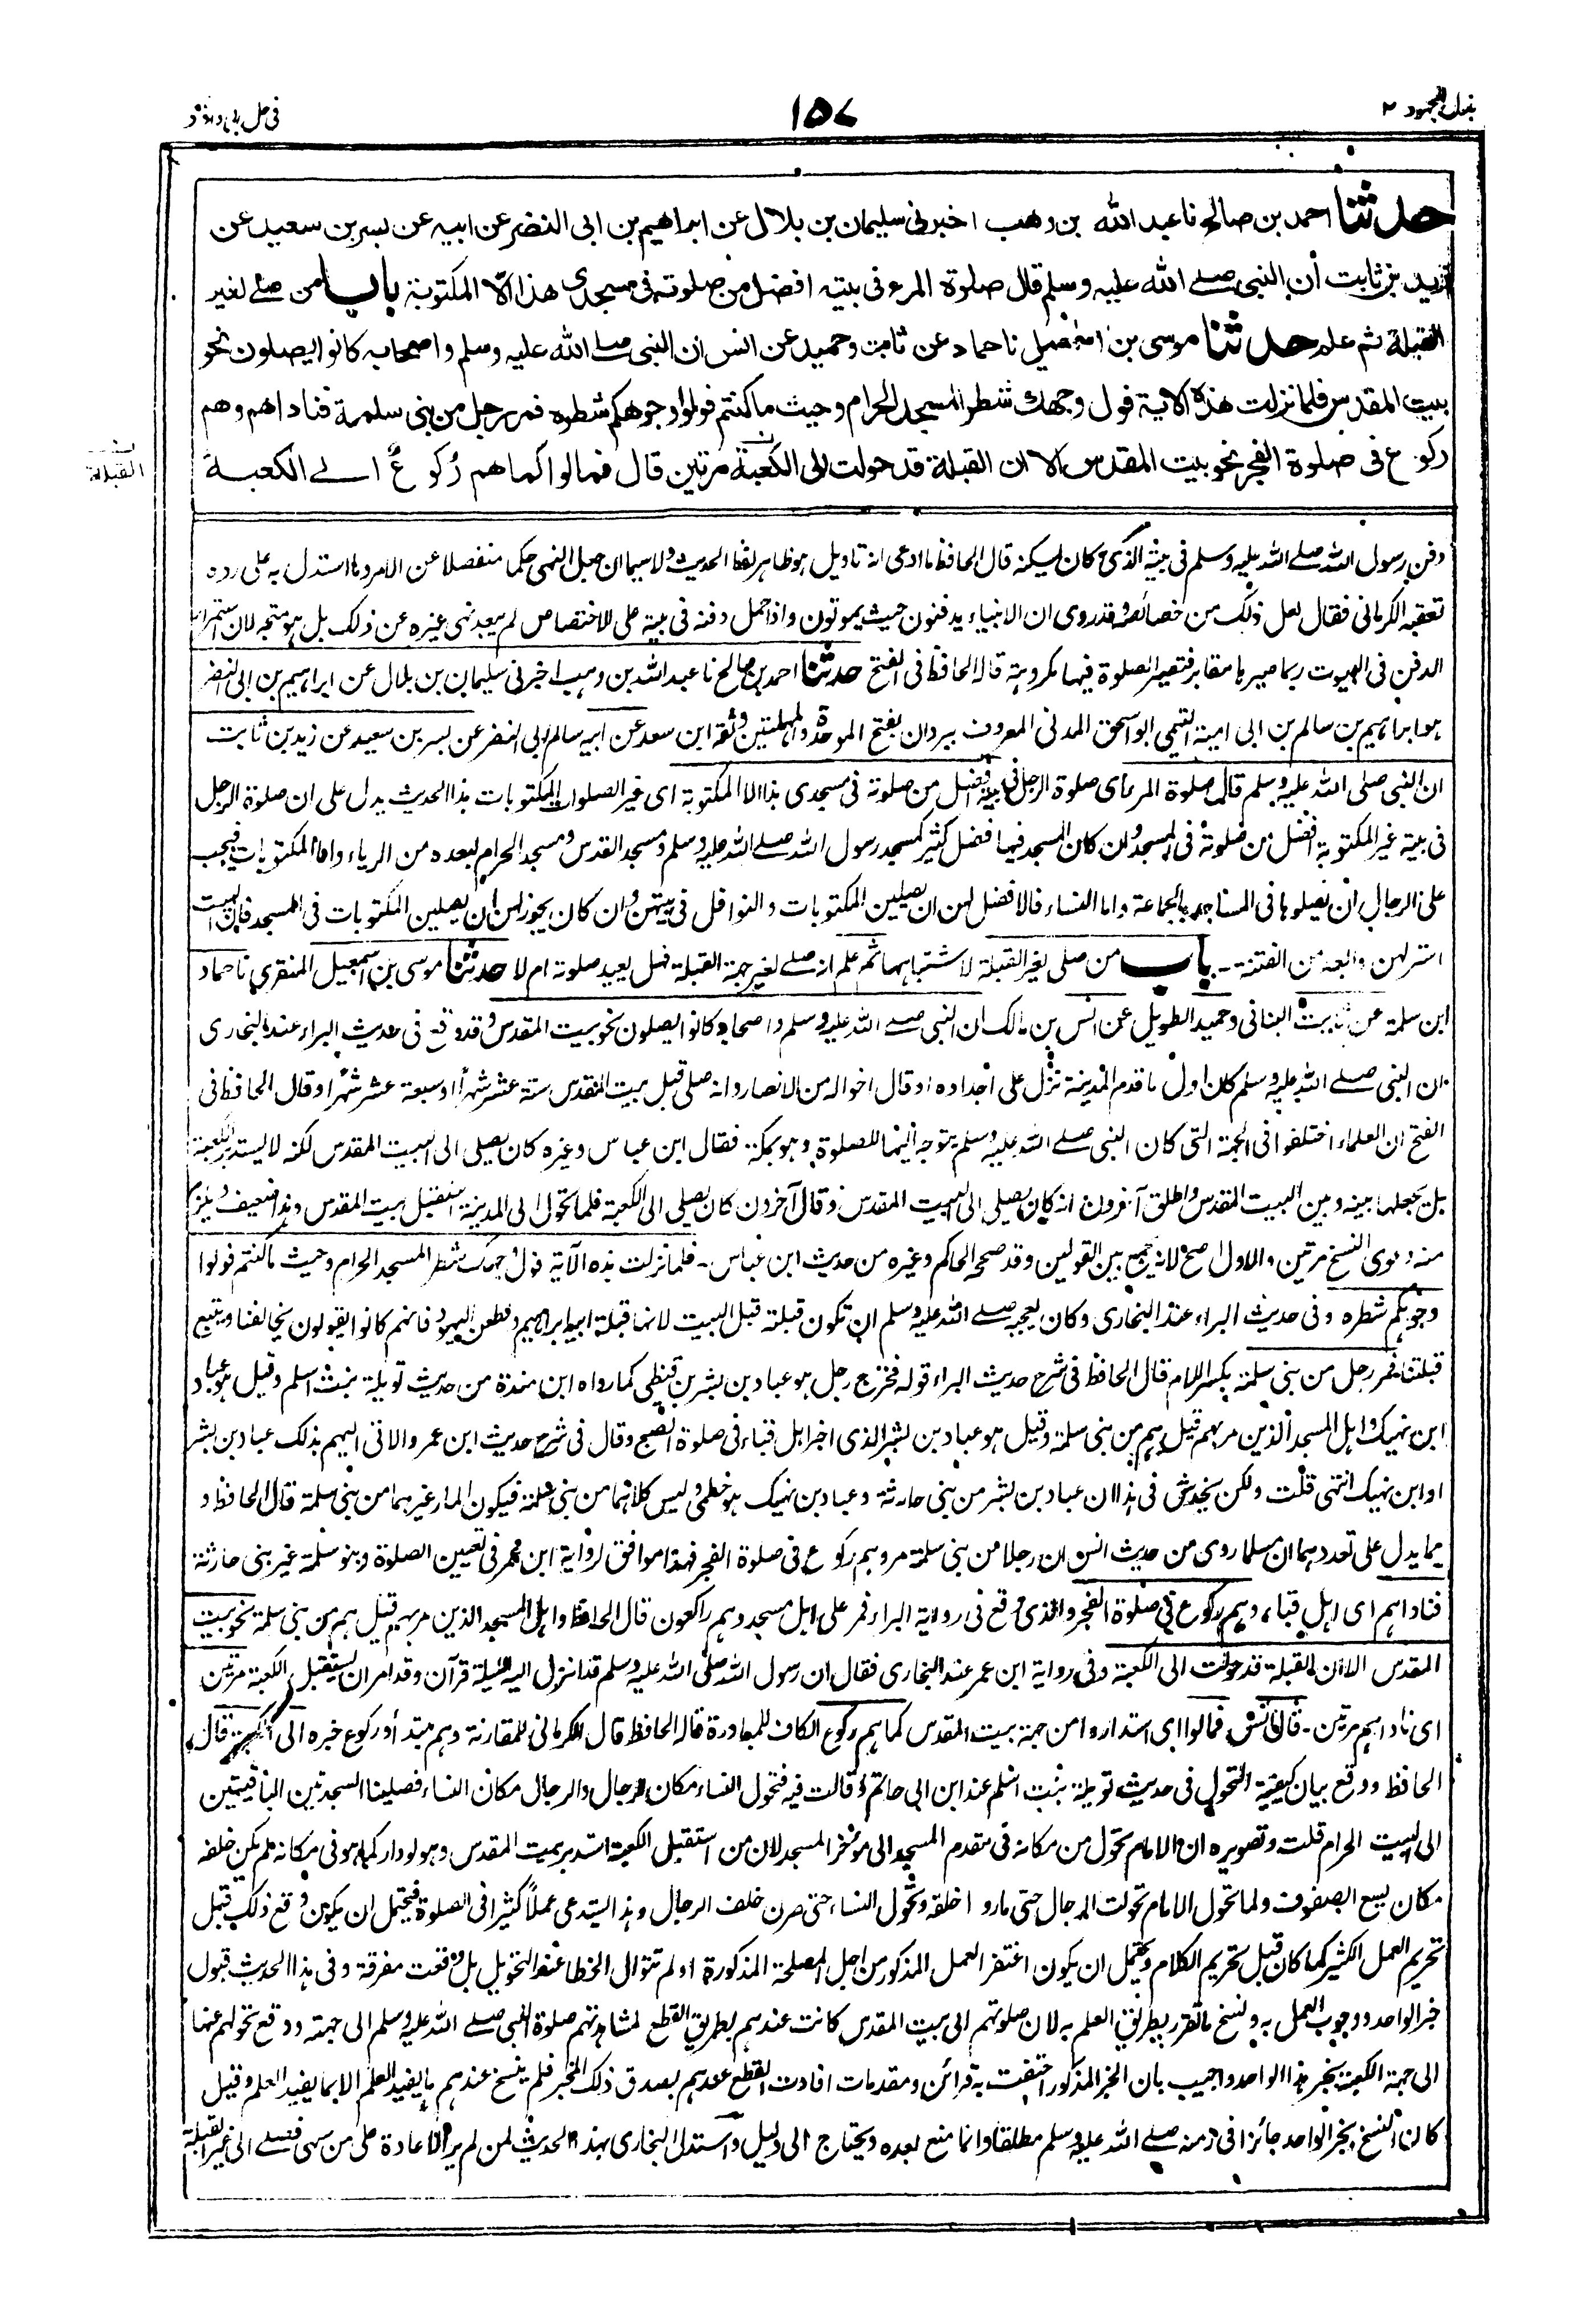 بذل المجهود ٢
١٥٧
في حل ابي داؤد
حدثنا احمد بن صالح نا عبد الله بن وهب اخبرني سليمان بن بلال عن ابراهيم بن ابى النضر عن ابيه عن بسر بن سعيد عن
زيد بن ثابت أن النبى صلے الله عليه وسلم قال صلوة المرء فى بيته افضل من صلوته فى مسجدى هذا الا المكتوبة باب من صلے لغير
القبلة ثم علم حدثنا موسى بن اسمعيل نا حماد عن ثابت وحميد عن انس ان النبى صلے الله عليه وسلم واصحابه كانوا يصلون نحو
بيت المقدس فلما نزلت هذه الاية فول وجهك شطر المسجد الحرام وحيث ما كنتم فولوا وجوهكم شطره فمر رجل من بنى سلمة فناداهم وهم
ركوع فى صلوة الفجر نحو بيت المقدس الا ان القبلة قد حولت الى الكعبة مرتين قال فمالوا كما هم رُكوعٌ الے الكعبة
ن القبلة
دفن رسول الله صلے الله عليه وسلم فى بيته الذى كان يسكنه قال الحافظ ما ادعى انه تاويل هو ظاهر لفظ الحديث ولا سيما ان جعل النهى حكما منفصلا عن الامر وما استدل به على رده
تعقبه الكرمانى فقال لعل ذلك من خصائصه وقد روى ان الانبياء يدفنون حيث يموتون واذا حمل دفنه فى بيته على الاختصاص لم يبعد نهى غيره عن ذلك بل هو متجه لان استمرار
الدفن فى البيوت ربما صيرها مقابر فتصير الصلوة فيها مكروهة قاله الحافظ فى الفتح حدثنا احمد بن صالح نا عبد الله بن وهب اخبرنى سليمان بن بلال عن ابراهيم بن ابى النضر
هو ابراهيم بن سالم بن ابى امية التيمى ابو اسحق المدنى المعروف ببردان بفتح الموحدة والمهملتين وثقه ابن سعد عن ابيه سالم ابى النضر عن بسر بن سعيد عن زيد بن ثابت
ان النبى صلى الله عليه وسلم قال صلوة المرء اى صلوة الرجل فى بيته افضل من صلوته فى مسجدى هذا الا المكتوبة اى غير الصلوات المكتوبات هذا الحديث يدل على ان صلوة الرجل
فى بيته غير المكتوبة افضل من صلوته فى المسجد وان كان المسجد فيها فضل كثير كمسجد رسول الله صلے الله عليه وسلم ومسجد القدس ومسجد الحرام لبعده من الرياء واما المكتوبات فيجب
على الرجال ان يصلوها فى المساجد بالجماعة واما النساء فالافضل لهن ان يصلين المكتوبات والنوافل فى بيتهن وان كان يجوز لهن ان يصلين المكتوبات فى المسجد فان البيت
استر لهن وابعد من الفتنة - باب من صلى لغير القبلة لاشتباهها ثم علم انه صلے لغير جهة القبلة فهل يعيد صلوته ام لا حدثنا موسى بن اسمعيل المنقرى نا حماد
ابن سلمة عن ثابت البنانى وحميد الطويل عن انس بن مالك ان النبى صلے الله عليه وسلم واصحابه كانوا يصلون نحو بيت المقدس وقد وقع فى حديث البراء عند البخارى
ان النبى صلے الله عليه وسلم كان اول ما قدم المدينة نزل على اجداده او قال اخواله من الانصار وانه صلى قبل بيت المقدس ستة عشر شهرا او سبعة عشر شهرا وقال الحافظ فى
الفتح ان العلماء اختلفوا فى الجهة التى كان النبى صلے الله عليه وسلم يتوجه اليها للصلوة وهو بمكة فقال ابن عباس وغيره كان يصلى الى البيت المقدس لكنه لا يستدبر الكعبة
بل يجعلها بينه وبين البيت المقدس واطلق آخرون انه كان يصلى الى البيت المقدس وقال آخرون كان يصلى الى الكعبة فلما تحول الى المدينة استقبل بيت المقدس وهذا ضعيف ويلزم
منه دعوى النسخ مرتين والاول اصح لانه يجمع بين القولين وقد صححه الحاكم وغيره من حديث ابن عباس - فلما نزلت هذه الآية فول وجهك شطر المسجد الحرام وحيث ما كنتم فولوا
وجوهكم شطره وفى حديث البراء عند البخارى وكان يعجبه صلے الله عليه وسلم ان تكون قبلته قبل البيت لانها قبلة ابيه ابراهيم وطعن اليهود فانهم كانوا يقولون يخالفنا ويتبع
قبلتنا فمر رجل من بنى سلمة بكسر اللام قال الحافظ فى شرح حديث البراء قوله فخرج رجل هو عباد بن بشر بن قيظى كما رواه ابن مندة من حديث تويلة بنت اسلم وقيل هو عباد
ابن نهيك واهل المسجد الذين مر بهم قيل هم من بنى سلمة وقيل هو عباد بن بشر الذى اخبر اهل قباء فى صلوة الصبح وقال فى شرح حديث ابن عمر والاتى اليهم بذلك عباد بن بشر
او ابن نهيك انتهى قلت ولكن يخدش فى هذا ان عباد بن بشر من بنى حارثة وعباد بن نهيك هو خطمى وليس كلاهما من بنى سلمة فيكون المار غيرهما من بنى سلمة قال الحافظ و
مما يدل على تعددهما ان مسلما روى من حديث انس ان رجلا من بنى سلمة مر وهم ركوع فى صلوة الفجر فهذا موافق لرواية ابن عمر فى تعيين الصلوة وبنو سلمة غير بنى حارثة
فناداهم اى اهل قباء وهم ركوع فى صلوة الفجر والذى وقع فى رواية البراء فمر على اهل مسجد وهم راكعون قال الحافظ واهل المسجد الذين مر بهم قيل هم من بنى سلمة نحو بيت
المقدس الا ان القبلة قد حولت الى الكعبة وفى رواية ابن عمر عند البخارى فقال ان رسول الله صلى الله عليه وسلم قد انزل اليه الليلة قرآن وقد امر ان يستقبل الكعبة مرتين
اى ناداهم مرتين - قال انس فمالوا اى استداروا من جهة بيت المقدس كما هم ركوع الكاف للمبادرة قاله الحافظ قال الكرمانى للمقارنة وهم مبتدأ وركوع خبره الى الكعبة قال
الحافظ ووقع بيان كيفية التحول فى حديث تويلة بنت اسلم عند ابن ابى حاتم وقالت فيه فتحول النساء مكان الرجال والرجال مكان النساء فصلينا السجدتين الباقيتين
الى البيت الحرام قلت وتصويره ان الامام تحول من مكانه فى مقدم المسجد الى مؤخر المسجد لان من استقبل الكعبة استدبر بيت المقدس وهو لو دار كما هو فى مكانه لم يكن خلفه
مكان يسع الصفوف ولما تحول الامام تحولت الرجال حتى صاروا خلفه وتحول النساء حتى صرن خلف الرجال وهذا يستدعى عملا كثيرا فى الصلوة فيحتمل ان يكون وقع ذلك قبل
تحريم العمل الكثير كما كان قبل تحريم الكلام ويحتمل ان يكون اغتفر العمل المذكور من اجل المصلحة المذكورة او لم تتوال الخطا عند التحويل بل وقعت مفرقة وفى هذا الحديث قبول
خبر الواحد ووجوب العمل به ونسخ ما تقرر بطريق العلم به لان صلوتهم الى بيت المقدس كانت عندهم بطريق القطع لمشاهدتهم صلوة النبى صلے الله عليه وسلم الى جهته ووقع تحولهم عنها
الى جهة الكعبة بخبر هذا الواحد واجيب بان الخبر المذكور احتفت به قرائن ومقدمات افادت القطع عندهم بصدق ذلك المخبر فلم ينسخ عندهم ما يفيد العلم الا بما يفيد العلم وقيل
كان النسخ بخبر الواحد جائزا فى زمنه صلے الله عليه وسلم مطلقا وانما منع بعده ويحتاج الى دليل واستدل البخارى بهذا الحديث لمن لم ير الاعادة على من سهى فصلے الى غير القبلة